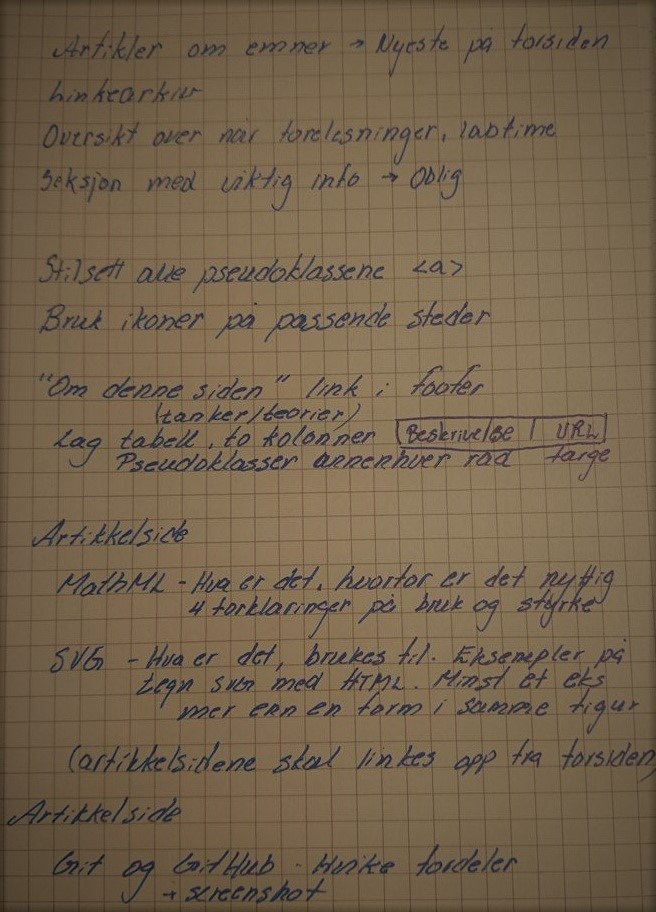 Artikler om emner → Nyeste på forsiden
Linkearkiv
Oversikt over når forelesninger, labtime
Seksjon med viktig info → Oblig
Stilsett alle pseudoklassene <a>
Bruk ikoner på passende steder
"Om denne siden" link i footer
(tanker/teorier)
Lag tabell, to kolonner Beskrivelse | URL
Pseudoklasser annenhver rad farge
Artikkelside
MathML - Hva er det, hvorfor er det nyttig
4 forklaringer på bruk og styrke
SVG - Hva er det, brukes til. Eksempler på
tegn svg med HTML. Minst et eks
mer enn en form i samme figur
(artikkelsidene skal linkes opp fra forsiden)
Artikkelside
Git og GitHub - Hvilke fordeler
→ screenshot